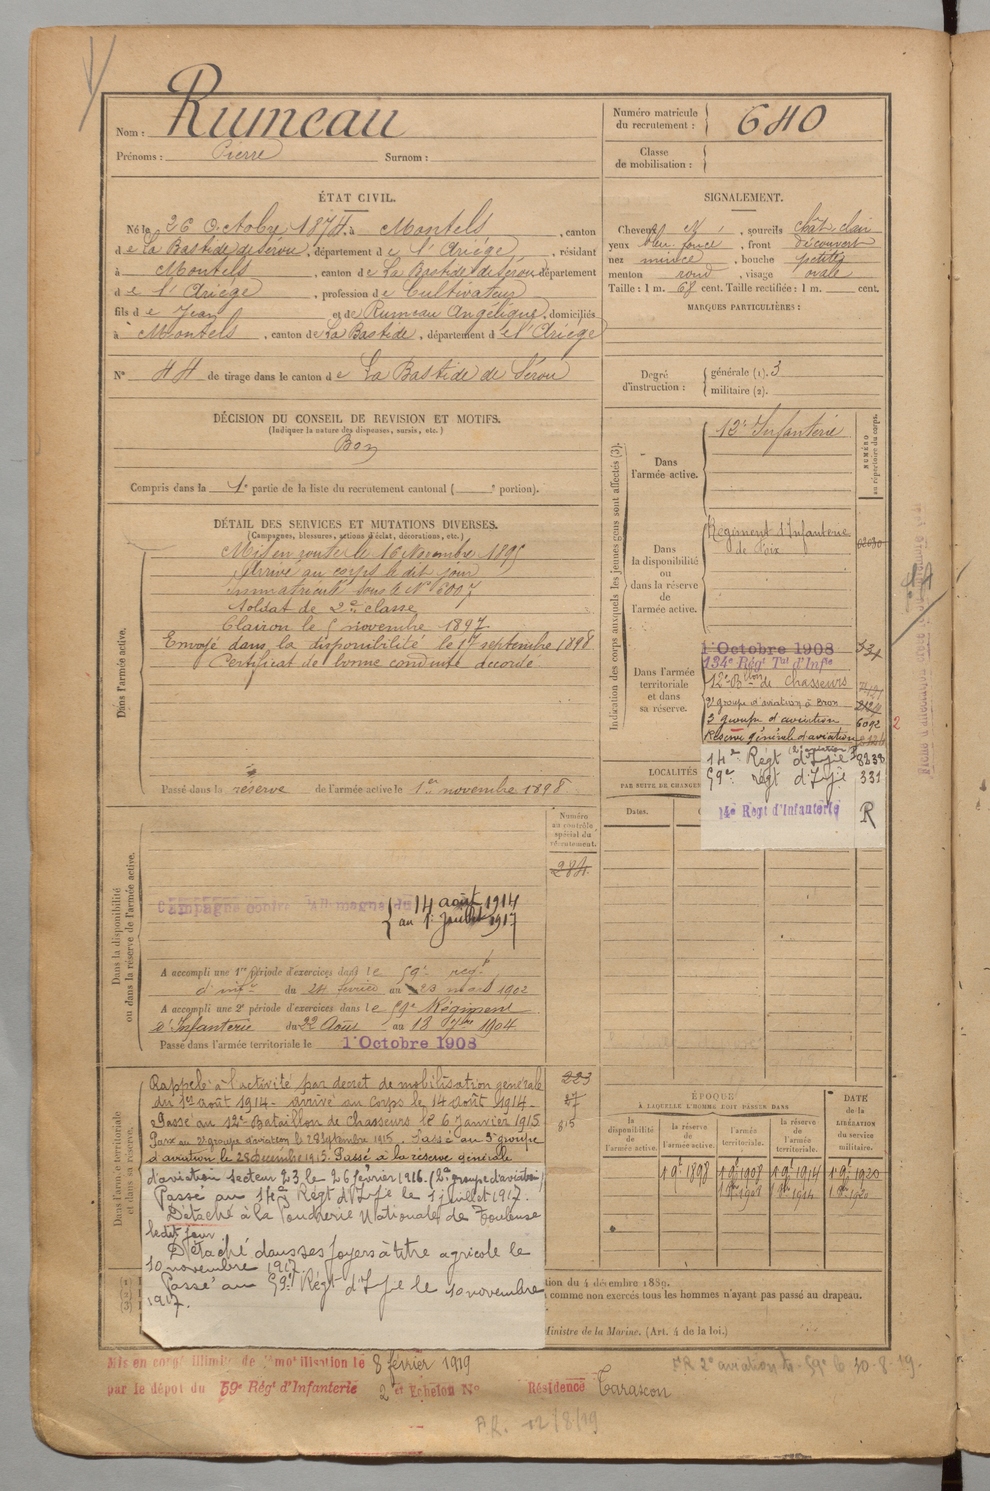 Nom : Rumeau
Prénoms : Pierre Surnom :
Numéro matricule du recrutement : 640
Classe de mobilisation :
ÉTAT CIVIL.
Né le 26 Octobre 1874 à Montels, canton
de La Bastide de Sérou, département de l'Ariège, résidant
à Montels, canton de La Bastide de Sérou département
de l'Ariège, profession de Cultivateur
fils de Jean et de Rumeau Angélique, domiciliés
à Montels, canton de La Bastide, département de l'Ariège
N° 44 de tirage dans le canton de La Bastide de Sérou
SIGNALEMENT.
Cheveux et, sourcils chât clair
yeux bleu foncé, front découvert
nez mince, bouche petite
menton rond, visage ovale
Taille : 1 m. 68 cent. Taille rectifiée : 1 m. cent.
MARQUES PARTICULIÈRES :
Degré d'instruction : générale (1). 3
militaire (2).
DÉCISION DU CONSEIL DE REVISION ET MOTIFS.
(Indiquer la nature des dispenses, sursis, etc.)
Bon
Compris dans la 1e partie de la liste du recrutement cantonal ( e portion).
DÉTAIL DES SERVICES ET MUTATIONS DIVERSES.
(Campagnes, blessures, actions d'éclat, décorations, etc.)
Dans l'armée active.
Mis en route le 16 Novembre 1895
Arrivé au corps le dit jour
immatriculé sous le N° 6007
Soldat de 2e classe
Clairon le 5 novembre 1897
Envoyé dans la disponibilité le 17 septembre 1898
Certificat de bonne conduite accordé
Passé dans la réserve de l'armée active le 1er novembre 1898
Indication des corps auxquels les jeunes gens sont affectés (3).
NUMÉRO au répertoire du corps.
Dans l'armée active.
12e Infanterie
Dans la disponibilité ou dans la réserve de l'armée active.
Régiment d'Infanterie
de Foix
Dans l'armée territoriale et dans sa réserve.
1 Octobre 1908
134e Régt Tal d'Infie
12e Bllon de Chasseurs
2e groupe d'aviation à Bron
3 groupe d'aviation 6092
Réserve générale d'aviation
(2e aviation)
14e Régt d'Infie 8238
59e régt d'Infie 331
14e Régt d'Infanterie R
2
LOCALITÉS
PAR SUITE DE CHANGE
Dates.
Dans la disponibilité ou dans la réserve de l'armée active.
Numéro au contrôle spécial du recrutement.
284
Campagne contre l'Allemagne du 14 août 1914
au 1er Juillet 1917
A accompli une 1re période d'exercices dans le 59e régt
d'infie du 24 février au 23 mars 1902
A accompli une 2e période d'exercices dans le 59e Régiment
d'Infanterie du 22 Août au 18 7bre 1904
Passé dans l'armée territoriale le 1 Octobre 1908
Dans l'armée territoriale et dans sa réserve.
Rappelé à l'activité par décret de mobilisation générale
du 1er août 1914 - arrivé au corps le 14 août 1914 -
Passé au 12e Bataillon de Chasseurs le 6 Janvier 1915
Passé au 2e groupe d'aviation le 28 Septembre 1915. Passé au 3e groupe
d'aviation le 25 décembre 1915. Passé à la réserve générale
d'aviation secteur 23 le 26 février 1916. (2e groupe d'aviation)
Passé au 14e Régt d'Infie le 1 juillet 1917.
Détaché à la Poudrerie Nationale de Toulouse
ledit jour.
Détaché dans ses foyers à titre agricole le
10 novembre 1917.
Passé au 59e Régt d'Infie le 10 novembre
1917.
223
815
ÉPOQUE
À LAQUELLE L'HOMME DOIT PASSER DANS
la disponibilité de l'armée active. la réserve de l'armée active. l'armée territoriale. la réserve de l'armée territoriale.
DATE de la LIBÉRATION du service militaire.
1 9e 1898 1 9e 1908 1 9e 1914 1 9e 1920
tion du 4 décembre 1889.
comme non exercés tous les hommes n'ayant pas passé au drapeau.
Ministre de la Marine. (Art. 4 de la loi.)
Mis en congé illimité de démobilisation le 8 février 1919
par le dépôt du 59e Régt d'Infanterie 2e Echelon N° Résidence Tarascon
FR 2e aviation 59e 30-8-19.
F.R. 12/8/19